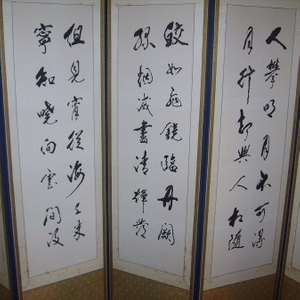 人攀明月不可得
月行却與人相隨
皎如飛鏡臨丹闕
緑烟滅盡清輝發
但見宵從海上来
寧知曉向雲間没